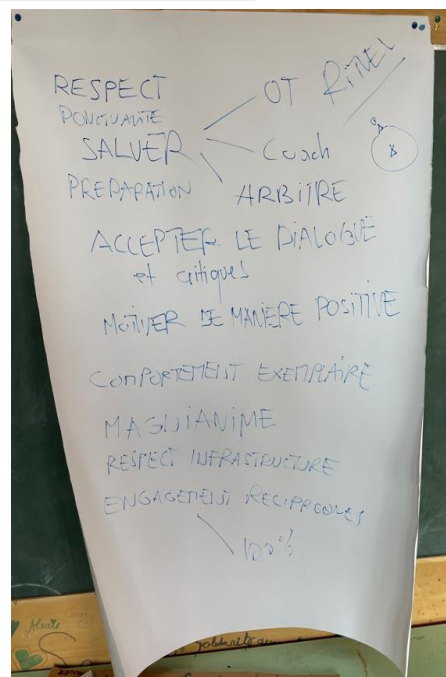 RESPECT
OT RITUEL
PONCTUALITE
SALUER
Coach
PREPARATION
ARBITRE
ACCEPTER LE DIALOGUE
et critiques
MOTIVER DE MANIERE POSITIVE
COMPORTEMENT EXEMPLAIRE
MAGNIANIME
RESPECT INFRASTRUCTURE
ENGAGEMENT RECIPROQUES
100%